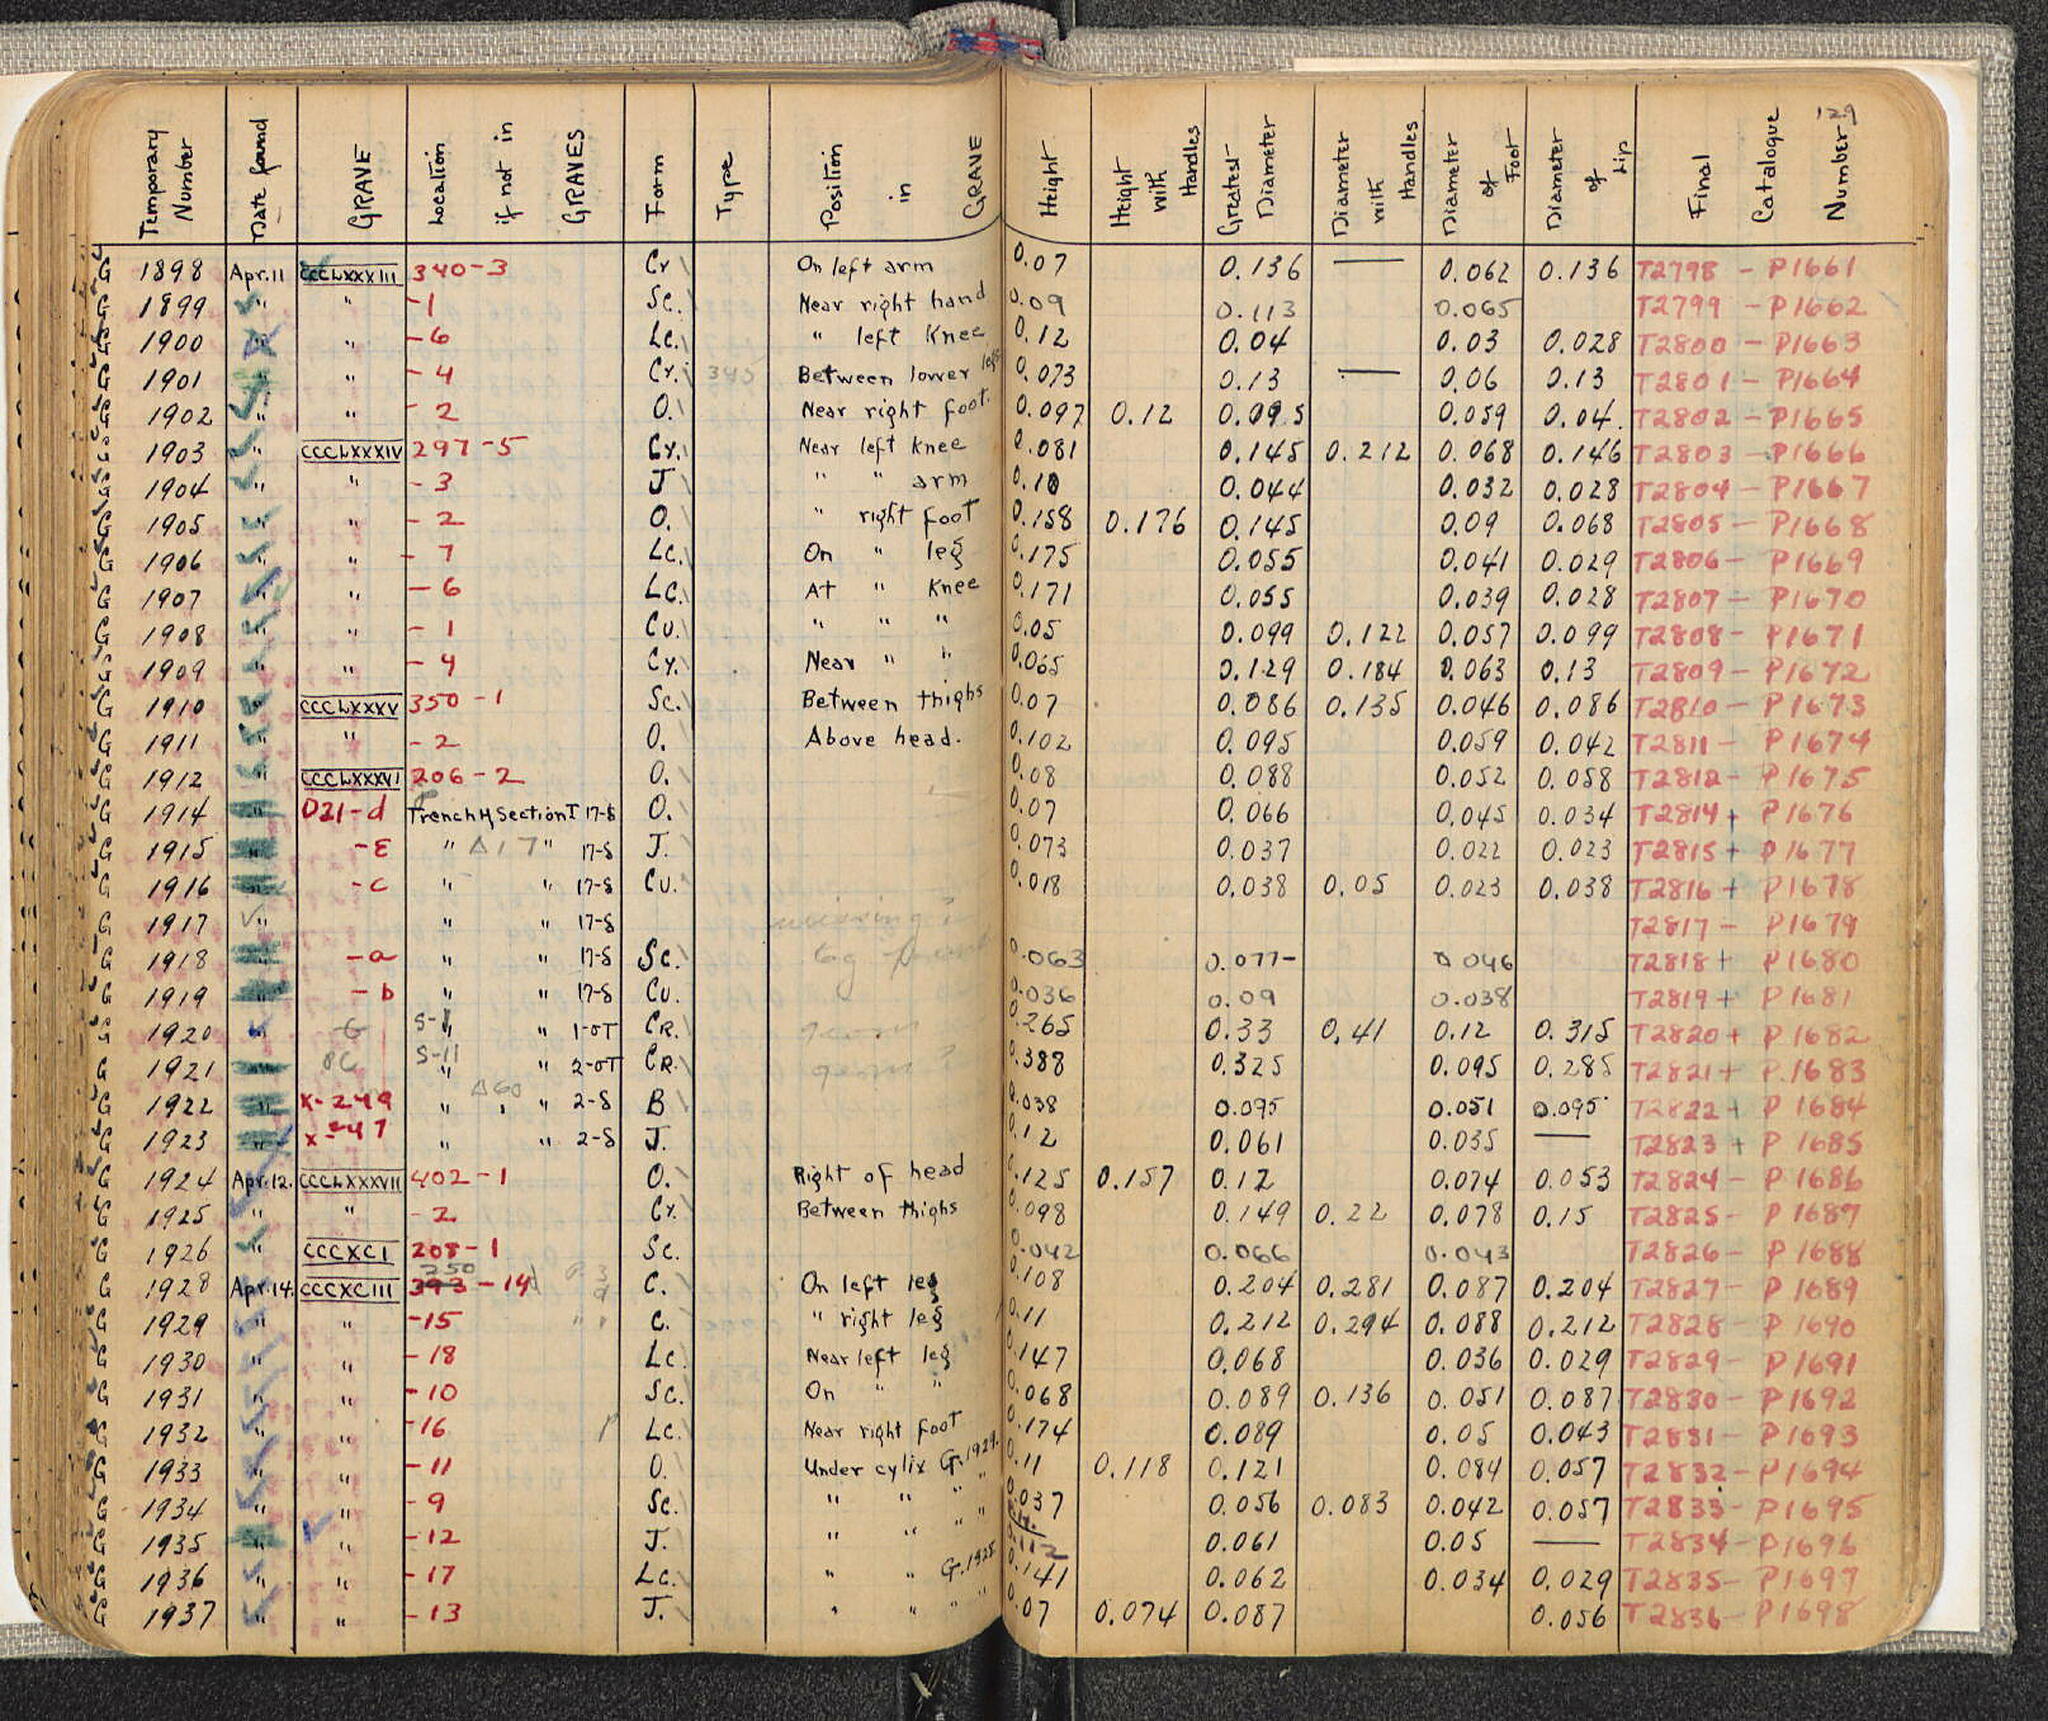 129
Temporary Number | Date found | GRAVE | Location if not in GRAVES | Form | Type | Position in GRAVE | Height | Height with Handles | Greatest Diameter | Diameter with Handles | Diameter of Foot | Diameter of Lip | Final Catalogue Number
G 1898 Apr.11 CCCLXXXIII 340-3 Cy On left arm 0.07 0.136 — 0.062 0.136 T2798 - P1661
G 1899 " " -1 Sc. Near right hand 0.09 0.113 0.065 T2799 - P1662
G 1900 " " -6 Lc. " left Knee 0.12 0.04 0.03 0.028 T2800 - P1663
G 1901 " " -4 Cy. 345 Between lower legs 0.073 0.13 — 0.06 0.13 T2801 - P1664
G 1902 " " -2 O. Near right foot. 0.097 0.12 0.095 0.059 0.04. T2802 - P1665
G 1903 " CCCLXXXIV 297-5 Cy. Near left Knee 0.081 0.145 0.212 0.068 0.146 T2803 - P1666
G 1904 " " -3 J " " arm 0.10 0.044 0.032 0.028 T2804 - P1667
G 1905 " " -2 O. " right foot 0.158 0.176 0.145 0.09 0.068 T2805 - P1668
G 1906 " " -7 Lc. On " leg 0.175 0.055 0.041 0.029 T2806 - P1669
G 1907 " " -6 Lc. At " Knee 0.171 0.055 0.039 0.028 T2807 - P1670
G 1908 " " -1 Cu. " " " 0.05 0.099 0.122 0.057 0.099 T2808 - P1671
G 1909 " " -4 Cy. Near " " 0.065 0.129 0.184 0.063 0.13 T2809 - P1672
G 1910 " CCCLXXXV 350-1 Sc. Between thighs 0.07 0.086 0.135 0.046 0.086 T2810 - P1673
G 1911 " " -2 O. Above head. 0.102 0.095 0.059 0.042 T2811 - P1674
G 1912 " CCCLXXXVI 206-2 O. 0.08 0.088 0.052 0.058 T2812 - P1675
G 1914 " D21-d Trench 4 Section I 17-δ O. 0.07 0.066 0.045 0.034 T2814 + P1676
G 1915 " -ε " Δ17 " 17-δ J. 0.073 0.037 0.022 0.023 T2815 + P1677
G 1916 " -c " " 17-δ Cu. 0.018 0.038 0.05 0.023 0.038 T2816 + P1678
G 1917 " " " 17-δ missing? T2817 - P1679
G 1918 " -a " " 17-δ Sc. 0.063 0.077- 0.046 T2818 + P1680
G 1919 " -b " " 17-δ Cu. 0.036 0.09 0.038 T2819 + P1681
G 1920 " -G S-1 " " 1-σT CR. 0.265 0.33 0.41 0.12 0.315 T2820 + P1682
G 1921 " 8C S-11 " " 2-σT CR. 0.388 0.325 0.095 0.285 T2821 + P.1683
G 1922 " x-249 " Δ60 " 2-δ B 0.038 0.095 0.051 0.095 T2822 + P1684
G 1923 " x-247 " " 2-δ J. 0.12 0.061 0.035 — T2823 + P1685
G 1924 Apr.12. CCCLXXXVII 402-1 O. Right of head 0.125 0.157 0.12 0.074 0.053 T2824 - P1686
G 1925 " " -2 Cy. Between thighs 0.098 0.149 0.22 0.078 0.15 T2825 - P1687
G 1926 " CCCXCI 208-1 Sc. 0.042 0.066 0.043 T2826 - P1688
G 1928 Apr.14. CCCXCIII 393 250 -14 C. On left leg 0.108 0.204 0.281 0.087 0.204 T2827 - P1689
G 1929 " " -15 C. " right leg 0.11 0.212 0.294 0.088 0.212 T2828 - P1690
G 1930 " " -18 Lc. Near left leg 0.147 0.068 0.036 0.029 T2829 - P1691
G 1931 " " -10 Sc. On " " 0.068 0.089 0.136 0.051 0.087 T2830 - P1692
G 1932 " " -16 Lc. Near right foot 0.174 0.089 0.05 0.043 T2831 - P1693
G 1933 " " -11 O. Under cylix G.1929. 0.11 0.118 0.121 0.084 0.057 T2832 - P1694
G 1934 " " -9 Sc. " " " " 0.037 0.056 0.083 0.042 0.057 T2833 - P1695
G 1935 " " -12 J. " " " " 0.112 0.061 0.05 — T2834 - P1696
G 1936 " " -17 Lc. " " G.1928 0.141 0.062 0.034 0.029 T2835 - P1697
G 1937 " " -13 J. " " " " 0.07 0.074 0.087 0.056 T2836 - P1698